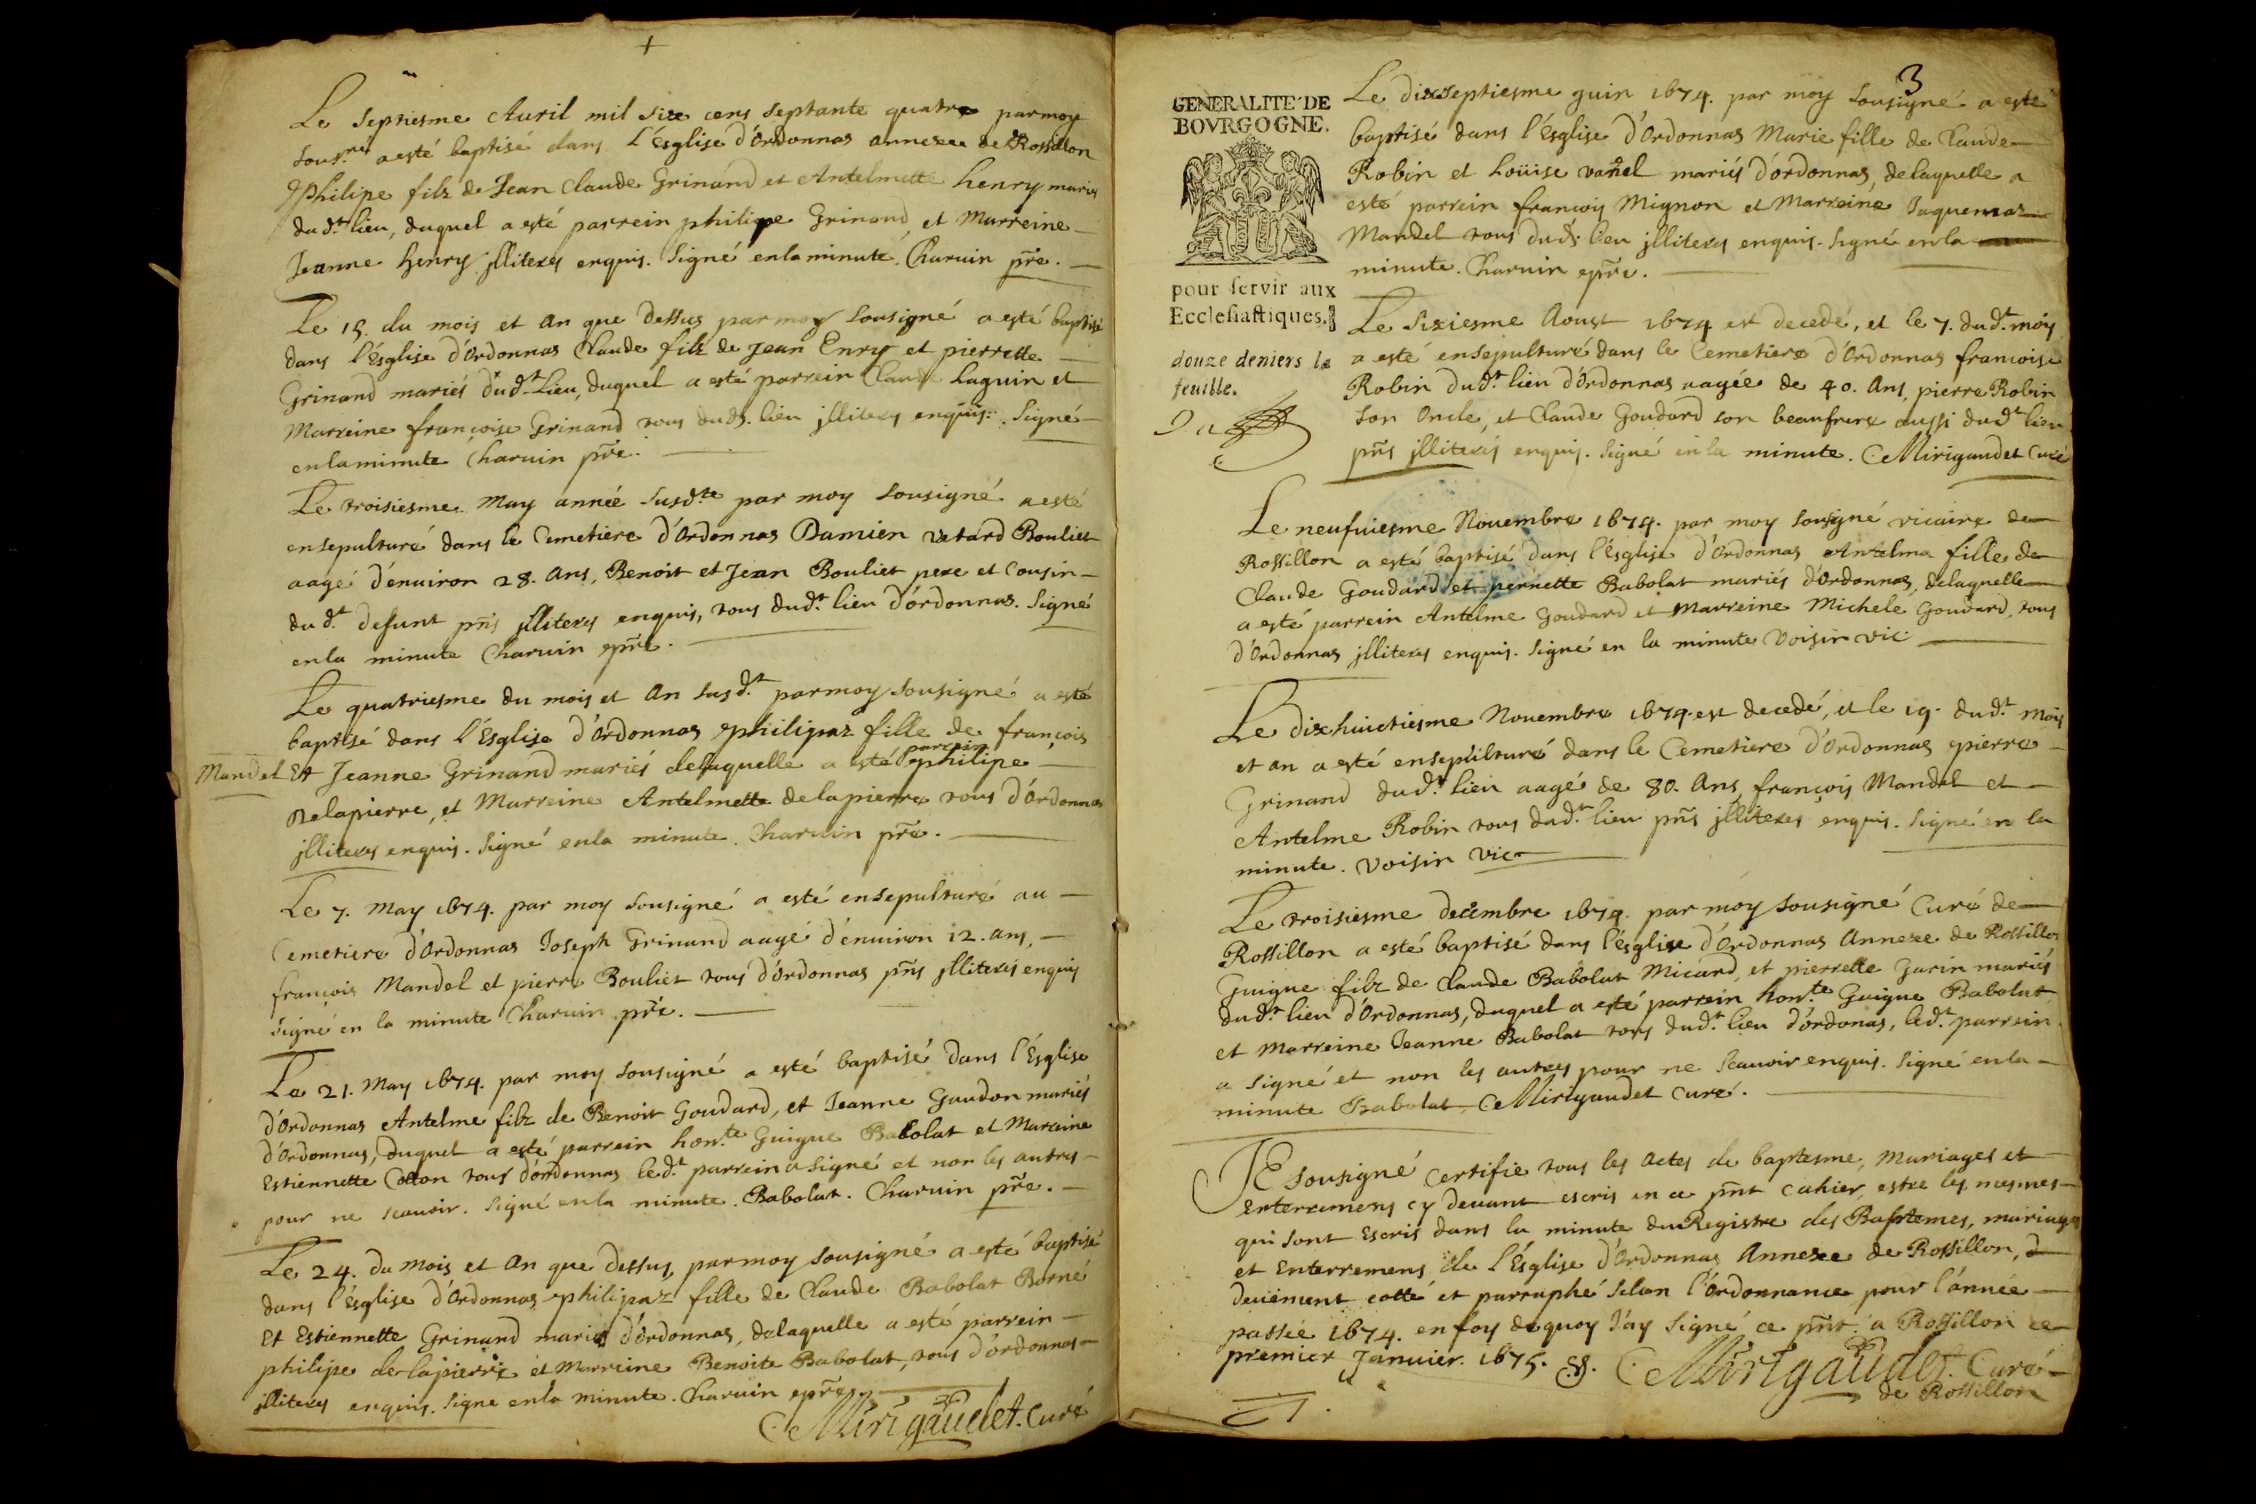 Le septiesme Auril mil six cens septante quatre par moy
sous.né a esté baptisé dans L'ésglise d'Ordonnas annexee de Rossillon
Philipe filz de Jean Claude Grinand et Antelmette henry mariés
du d.t lieu, duquel a esté parrein philipe Grinand, et Marreine
Jeanne henry jlliterés enquis. Signé en la minute. Charuin pre.
Le 15. du mois et an que dessus par moy sousigné a esté baptisé
dans l'ésglise d'Ordonnas Claude filz de Jean Enry et pierrette
Grinand mariés dud.t Lieu, duquel a esté parrein Claude Laguin et
Marreine françoise Grinand tous dud. lieu jlliterés enquis. Signé
en la minute Charuin pre.
Le troisiesme May année susd.te par moy sousigné a esté
ensepulturé dans le Cemetiere d'Ordonnas Damien vatard Bouliet
aagé d'enuiron 28. ans, Benoit et Jean Bouliet pere et Cousin
du d.t defunt pns jlliterés enquis, tous dud.t lieu d'ordonnas. Signé
en la minute Charuin pre.
Le quatriesme du mois et an susd.t par moy sousigné a esté
baptisé dans l'Ésglise d'Ordonnas philipaz fille de françois
parrein
Mandel Et Jeanne Grinand mariés delaquelle a esté philipe
Delapierre, et Marreine Antelmette delapierre tous d'Ordonnas
jlliterés enquis. Signé en la minute. Charuin pre.
Le 7. May 1674. par moy sousigné a esté ensepulturé au
Cemetiere d'Ordonnas Joseph Grinand aagé d'enuiron 12. ans,
françois Mandel et pierre Bouliet tous d'Ordonnas pns jlliterés enquis
signé en la minute Charuin pre.
Le 21. May 1674. par moy sousigné a esté baptisé dans l'Ésglise
d'Ordonnas Antelme filz de Benoit Goudard, et Jeanne Gaudon mariés
d'Ordonnas, duquel a esté parrein hon.te Guigue Babolat et Mareine
Estiennette Cotton tous d'ordonnas led.t parrein a signé et non les autres
pour ne scauoir. Signé en la minute. Babolat. Charuin pre.
Le 24. du mois et an que dessus, par moy sousigné a esté baptisé
dans l'ésglise d'Ordonnas philipaz fille de Claude Babolat Borné
Et Estiennette Grinand mariés d'Ordonnas, delaquelle a esté parrein
philipe delapierre et Marreine Benoite Babolat, tous d'ordonnas
jlliterés enquis. Signe en la minute. Charuin pre.
Mirigaudet. Curé
3
GENERALITE DE
BOVRGOGNE.
pour servir aux
Ecclesiastiques.
douze deniers la
feuille.
Le dixseptiesme guin 1674. par moy sousigné a esté
baptisé dans l'Esglise d'Ordonnas Marie fille de Claude
Robin et Loüise vanel mariés d'ordonnas, delaquelle a
esté parrein françois Mignon et Marreine Jaquemaz
Mandel tous dud. lieu jlliterés enquis. Signé en la
minute. Charuin pre.
Le Sixiesme Aoust 1674 est decedé, et le 7. dud.t mois
a esté ensepulturé dans le Cemetiere d'Ordonnas francoise
Robin dud.t lien d'Ordonnas aagée de 40. ans, pierre Robin
son oncle, et Claude Goudard son beaufrere aussi dud.t lieu
pns jlliterés enquis. Signé en la minute. Mirigaudet Curé
Le neufuiesme Nouembre 1674. par moy sousigné vicaire de
Rossillon a esté baptisé dans l'ésglise d'Ordonnas Antelma fille de
Claude Goudard et pernette Babolat mariés d'Ordonnas, delaquelle
a esté parrein Antelme Goudard et Marreine Michele Goudard, tous
d'Ordonnas jlliterés enquis. Signé en la minute Voisin vic
Le dixhuictiesme Nouembre 1674. est decedé, et le 19. dud.t mois
et an a esté ensepulturé dans le Cemetiere d'Ordonnas pierre
Grinand dud.t lieu aagé de 80. ans, françois Mandel et
Antelme Robin tous dud.t lieu pns jlliterés enquis. Signé en la
minute. Voisin vic
Le troisiesme decembre 1674. par moy sousigné Curé de
Rossillon a esté baptisé dans l'ésglise d'Ordonnas Annexe de Rossillon
Guigue filz de Claude Babolat Micard, et pierrette Garin mariés
dud.t lieu d'Ordonnas, duquel a esté parrein hon.te Guigue Babolat
et Marreine Jeanne Babolat tous dud.t lieu d'ordonas, led.t parrein
a signé et non les autres pour ne scauoir enquis. Signé en la
minute Babolat. Mirigaudet curé.
JE sousigné certifie tous les actes de baptesme, Mariages et
enterremens cy deuant escris en ce pnt cahier, estre les mesmes
qui sont Escris dans la minute du Registre des Baptemes, mariages
et Enterremens de l'Ésglise d'Ordonnas Annexe de Rossillon,
deüement cotté et parraphé selon l'Ordonnance pour l'année
passée 1674. en foy dequoy J'ay signé ce pnt. a Rossillon ce
premier Januier. 1675. Mirigaudet. Curé
de Rossillon